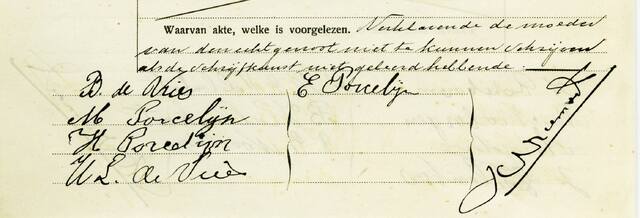 Waarvan akte, welke is voorgelezen. Verklarende de moeder
van den echtgenoot niet te kunnen schrijven
als de schrijfkunst niet geleerd hebbende.
B. de Vries E Porcelijn
M Porcelijn
H Porcelijn
de Vries